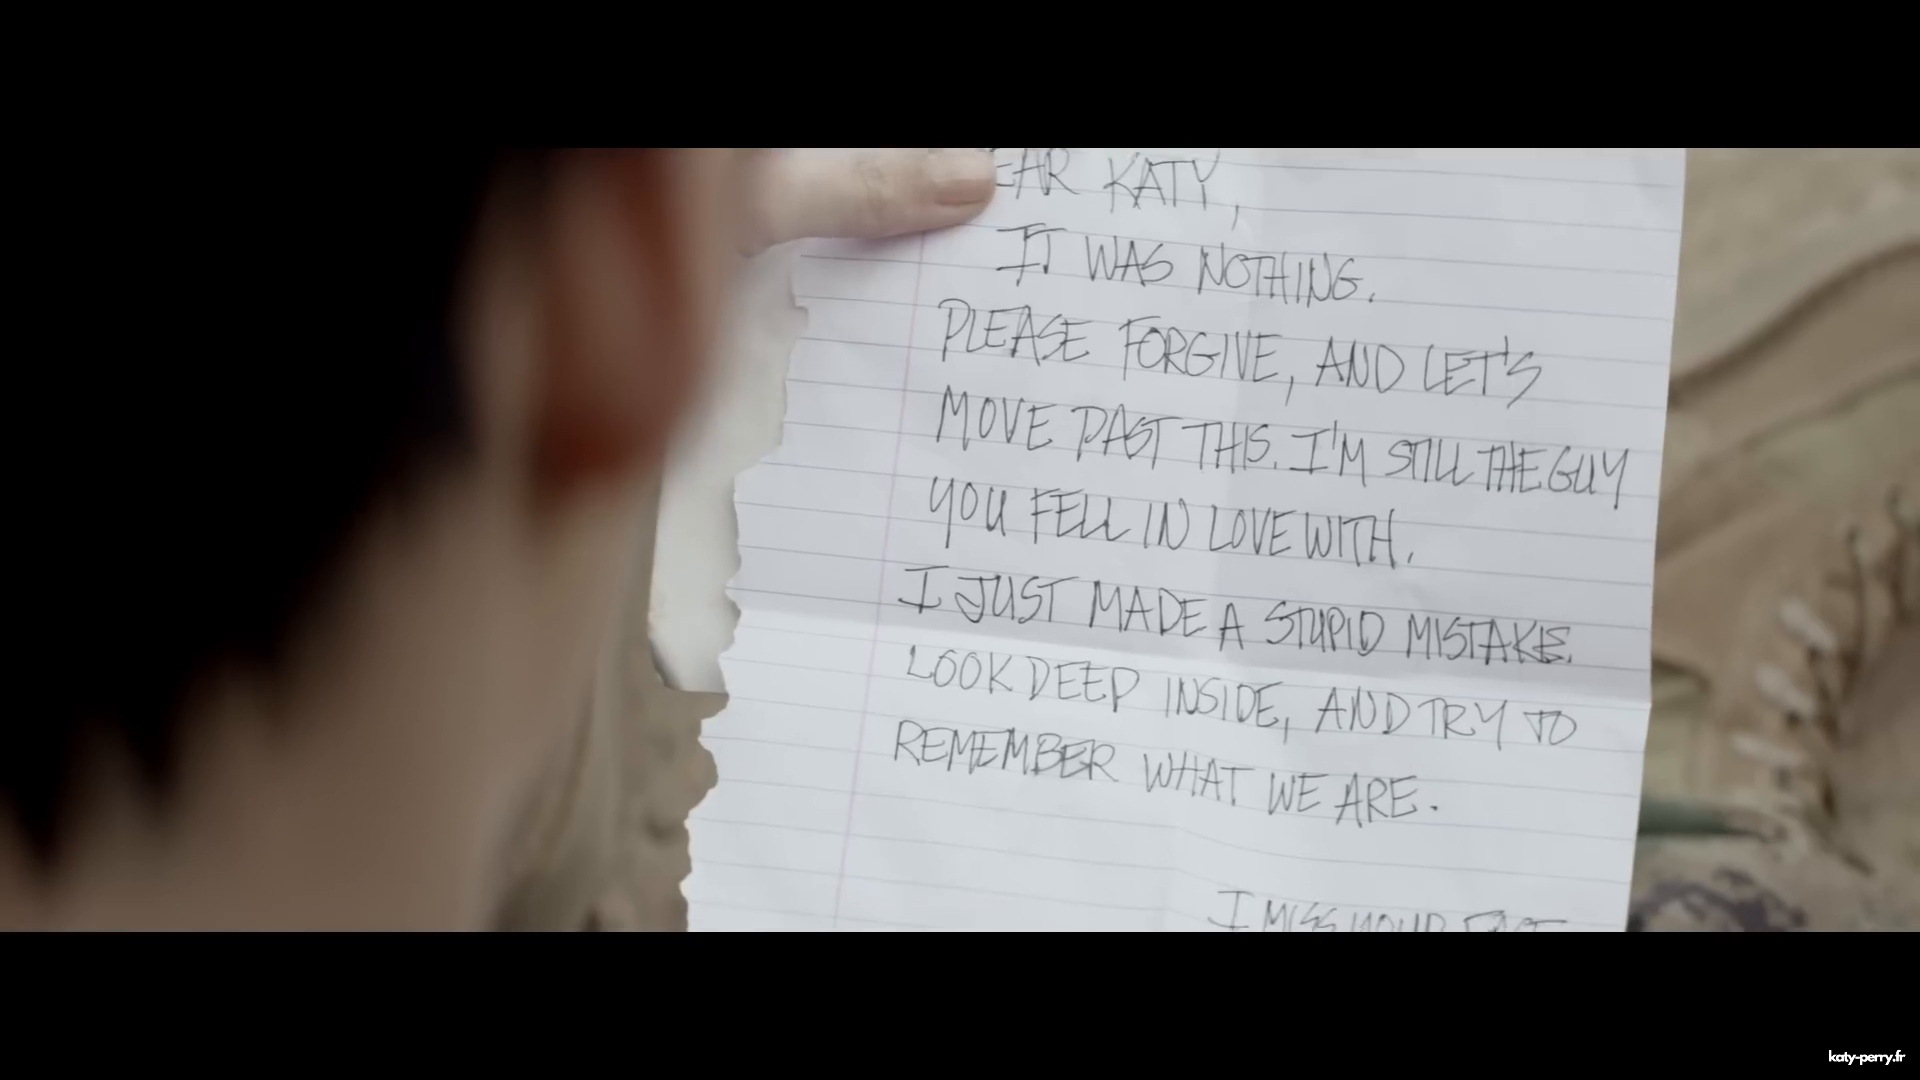 EAR KATY,
IT WAS NOTHING.
PLEASE FORGIVE, AND LET'S
MOVE PAST THIS. I'M STILL THE GUY
YOU FELL IN LOVE WITH.
I JUST MADE A STUPID MISTAKE.
LOOK DEEP INSIDE, AND TRY TO
REMEMBER WHAT WE ARE.
I MISS YOUR FACE
katy-perry.fr